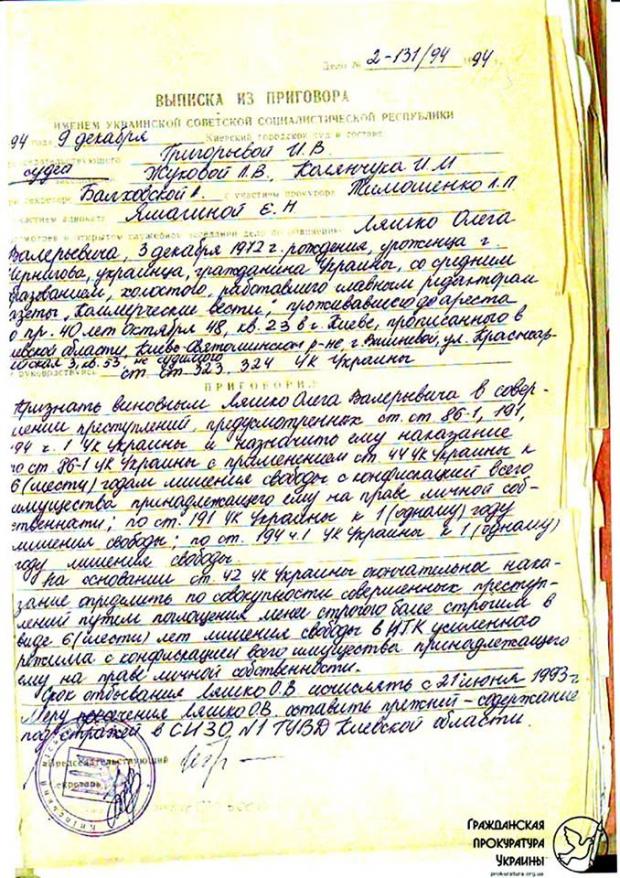 Дело № 2-131/94 1994 г.
ВЫПИСКА ИЗ ПРИГОВОРА
ИМЕНЕМ УКРАИНСКОЙ СОВЕТСКОЙ СОЦИАЛИСТИЧЕСКОЙ РЕСПУБЛИКИ
94 года 9 декабря Киевский городской суд в составе
председательствующего Григорьевой И.В.
судей Жуковой Л.В., Колянчука И.М
при секретаре Балховской с участием прокурора Тимошенко Л.П
участием адвоката Ямашиной Е.Н.
Ляшко Олега
Валерьевича, 3 декабря 1972 г. рождения, уроженца г.
Чернигова, украинца, гражданина Украины, со средним
образованием, холостого, работавшего главным редактором
газеты „Коммерческие вести", проживавшего до ареста
по пр. 40 лет Октября 48, кв. 23 в г. Киеве, прописанного в
Киевской области, Киево-Святошинском р-не г. Вишневый, ул. Красноар-
мейская 3, кв. 53, не судимого
руководствуясь ст. ст. 323, 324 УК Украины
ПРИГОВОРИЛ
Признать виновным Ляшко Олега Валерьевича в совер-
шении преступлений, предусмотренных ст. ст 86-1, 191,
194 ч. 1 УК Украины и назначить ему наказание
по ст. 86-1 УК Украины с применением ст. 44 УК Украины к
6 (шести) годам лишения свободы с конфискацией всего
имущества принадлежащего ему на праве личной соб-
ственности; по ст. 191 УК Украины к 1 (одному) году
лишения свободы; по ст. 194 ч.1 УК Украины к 1 (одному)
году лишения свободы.
На основании ст. 42 УК Украины окончательное нака-
зание определить по совокупности совершенных преступ-
лений путем поглощения менее строгого более строгим в
виде 6 (шести) лет лишения свободы в ИТК усиленного
режима с конфискацией всего имущества принадлежащего
ему на праве личной собственности.
Срок отбывания Ляшко О.В исчислять с 21 июня 1993 г.
Меру пресечения Ляшко О.В. оставить прежней - содержание
под стражей в СИЗО №1 ГУВД Киевской области.
Председательствующий
Секретарь
ГРАЖДАНСКАЯ
ПРОКУРАТУРА
УКРАИНЫ
prokuratura.org.ua